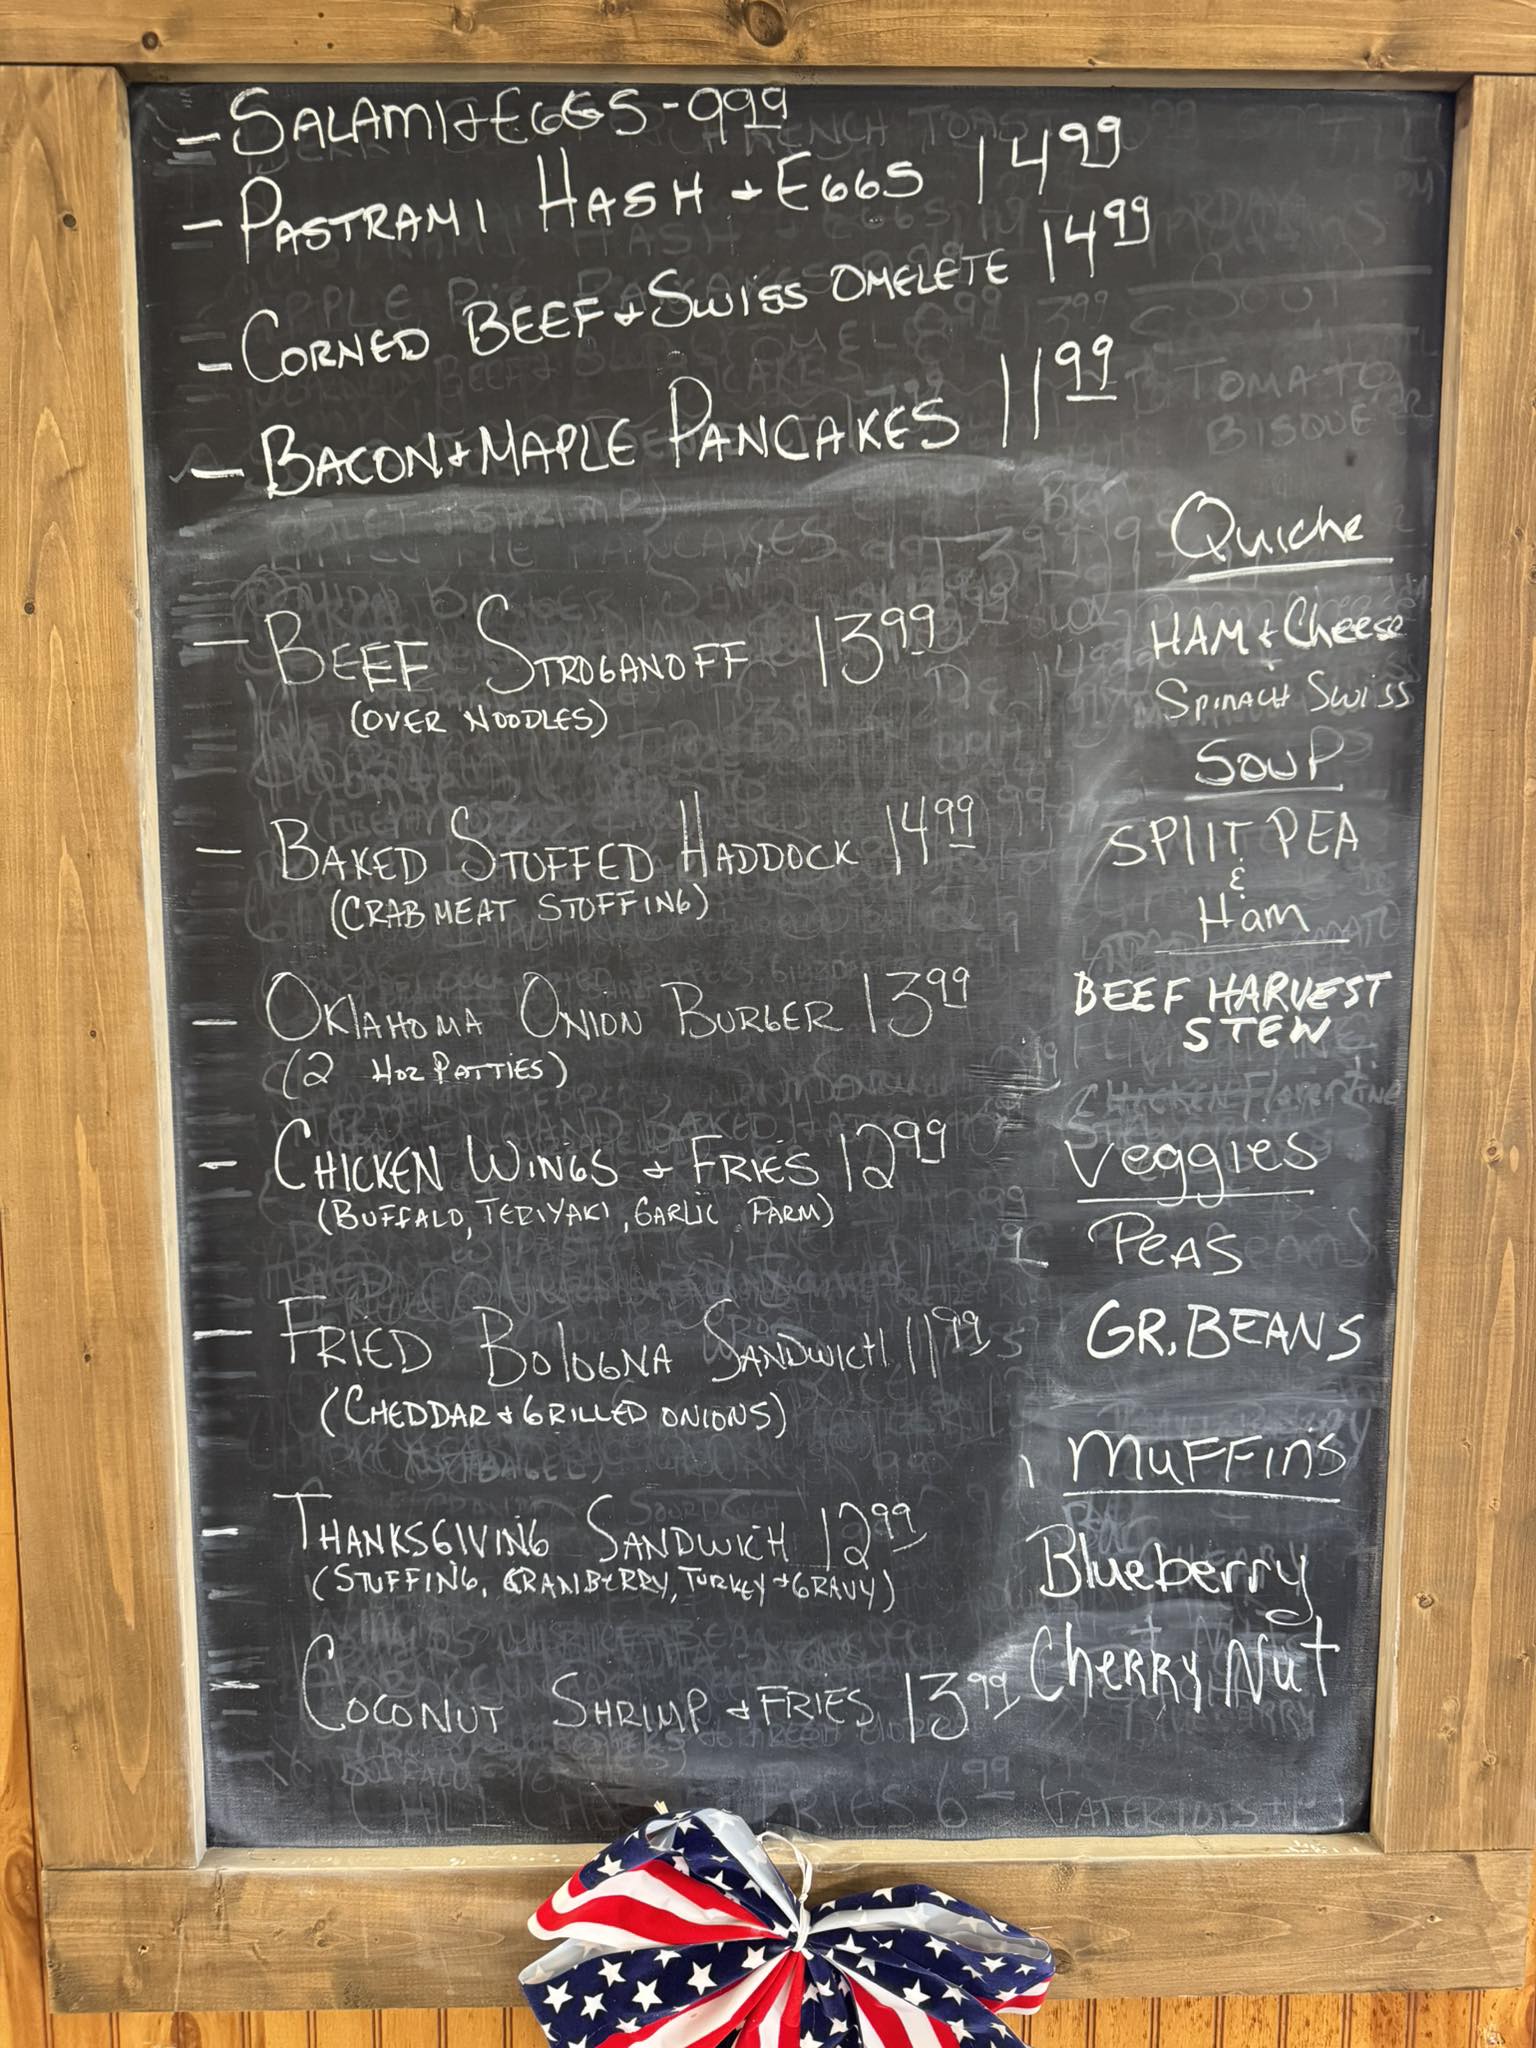 - SALAMI + EGGS - 9.99
- PASTRAMI HASH + EGGS 14.99
- CORNED BEEF + SWISS OMELETE 14.99
- BACON + MAPLE PANCAKES 11.99
- BEEF STROGANOFF 13.99
(OVER NOODLES)
- BAKED STUFFED HADDOCK 14.99
(CRAB MEAT STUFFING)
- OKLAHOMA ONION BURGER 13.99
(2 4oz PATTIES)
- CHICKEN WINGS + FRIES 12.99
(BUFFALO, TERIYAKI, GARLIC PARM)
- FRIED BOLOGNA SANDWICH 11.99
(CHEDDAR + GRILLED ONIONS)
- THANKSGIVING SANDWICH 12.99
(STUFFING, CRANBERRY, TURKEY + GRAVY)
- COCONUT SHRIMP + FRIES 13.99
Quiche
HAM + Cheese
+
SPINACH SWISS
SOUP
SPLIT PEA
&
Ham
BEEF HARVEST
STEW
Veggies
PEAS
GR. BEANS
MUFFINS
Blueberry
Cherry Nut